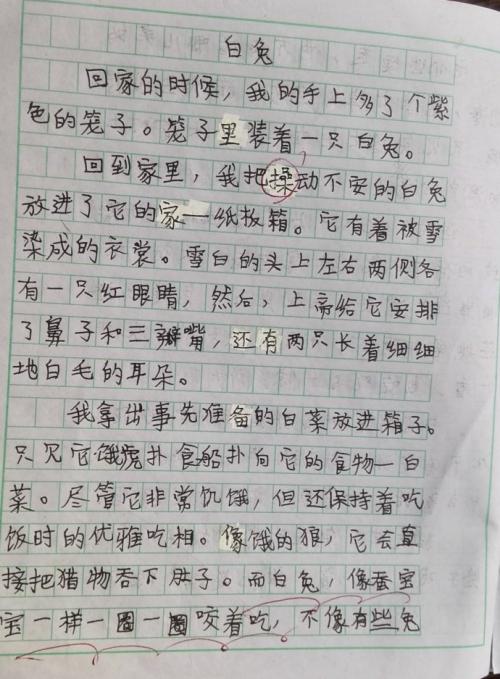 白兔
回家的时候，我的手上多了个紫
色的笼子。笼子里装着一只白兔。
回到家里，我把操动不安的白兔
放进了它的家一纸板箱。它有着被雪
染成的衣裳。雪白的头上左右两侧各
有一只红眼睛，然后，上帝给它安排
了鼻子和三瓣嘴，还有两只长着细细
地白毛的耳朵。
我拿出事先准备的白菜放进箱子。
只见它饿虎扑食船扑向它的食物一白
菜。尽管它非常饥饿，但还保持着吃
饭时的优雅吃相。像饿的狼，它会直
接把猎物吞下肚子。而白兔，像蚕宝
宝一样一圈一圈咬着吃，不像有些兔